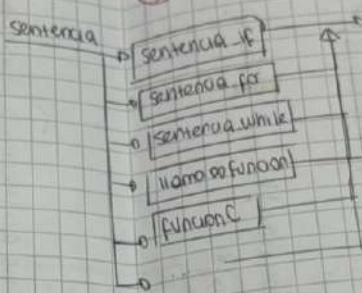 sentencia
sentencia_if
sentencia_for
sentencia_while
llamadofuncion
funcionC
...